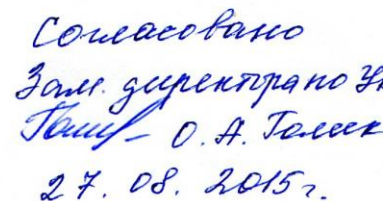 Согласовано
Зам. директора по У
О. А. Голик
27. 08. 2015г.